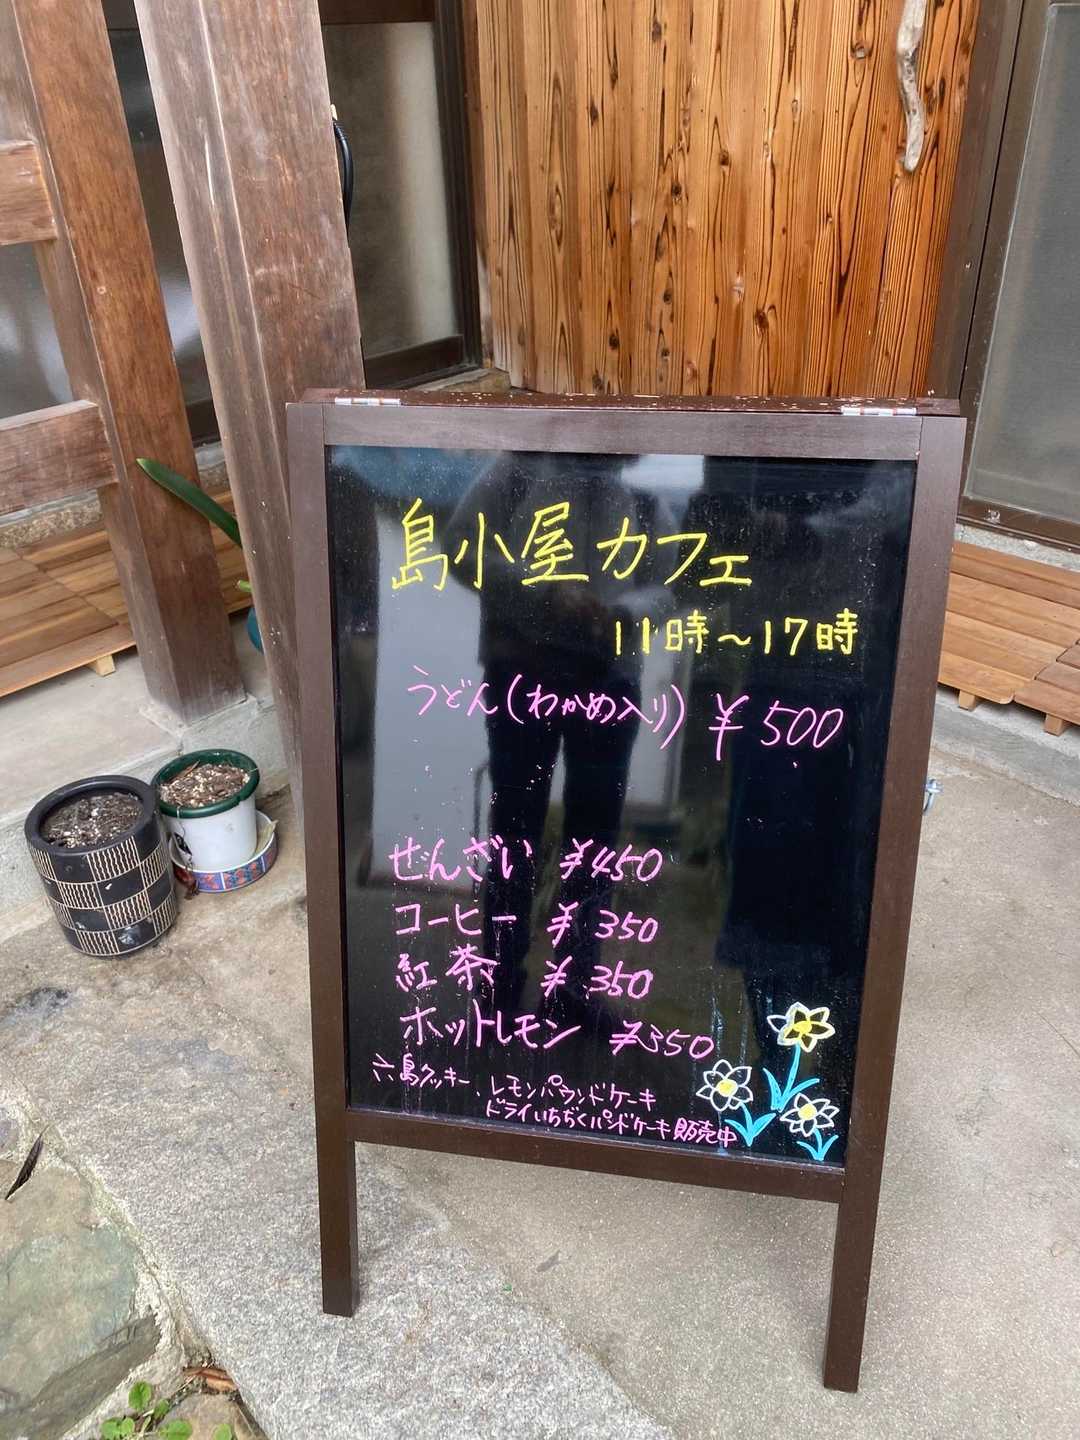 島小屋カフェ
11時〜17時
うどん(わかめ入り) ¥500
ぜんざい ¥450
コーヒー ¥350
紅茶 ¥350
ホットレモン ¥350
六島クッキー、レモンパウンドケーキ
ドライいちぢくパンドケーキ販売中